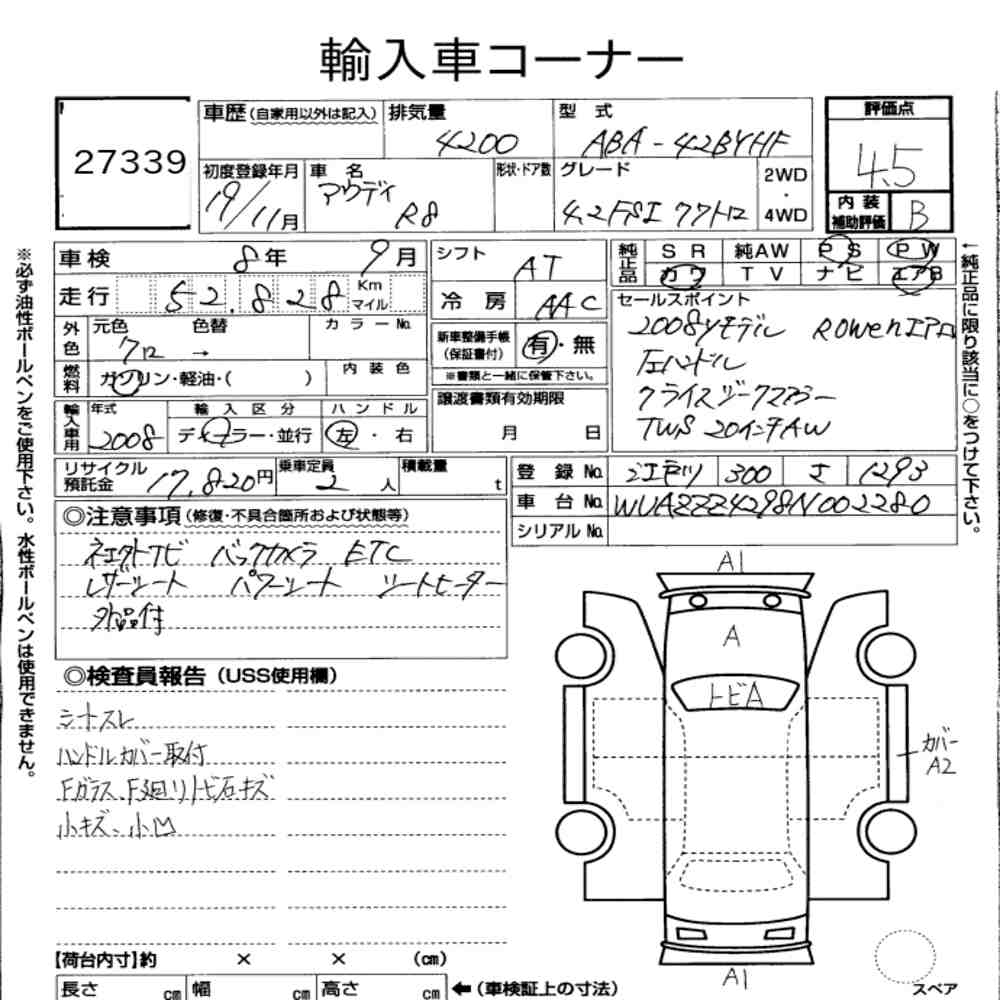 輸入車コーナー
27339
車歴(自家用以外は記入) 排気量 4200 型式 ABA-42BYHF
評価点 4.5
初度登録年月 19/11月 車名 アウディ R8 形状・ドア数 グレード 4.2FSI クワトロ 2WD・4WD
内装補助評価 B
車検 8年 9月
走行 52,828 Km マイル
シフト AT
冷房 AAC
純正品 SR 純AW PS PW
カワ TV ナビ エアB
外色 元色 クロ 色替 → カラーNo.
燃料 ガソリン・軽油・( ) 内装色
新車整備手帳(保証書付) 有・無
※書類と一緒に保管下さい。
セールスポイント
2008yモデル Rowenエアロ
左ハンドル
TWS 20インチAW
輸入車用 年式 2008 輸入区分 ディーラー・並行 ハンドル 左・右
譲渡書類有効期限 月 日
リサイクル預託金 17,820円 乗車定員 2人 積載量 t
登録No. 300 さ 1293
車台No. WUAZZZ4298N002280
シリアルNo.
◎注意事項(修復・不具合箇所および状態等)
バックカメラ ETC
レザーシート パワーシート シートヒーター
外品付
◎検査員報告(USS使用欄)
シートスレ
ハンドルカバー取付
Fガラス、F廻りトビ石キズ
小キズ、小凹
A1
A
トビA
カバー
A2
A1
【荷台内寸】約 × × (cm)
長さ cm 幅 cm 高さ cm ←(車検証上の寸法)
スペア
※必ず油性ボールペンをご使用下さい。水性ボールペンは使用できません。
←純正品に限り該当に○をつけて下さい。